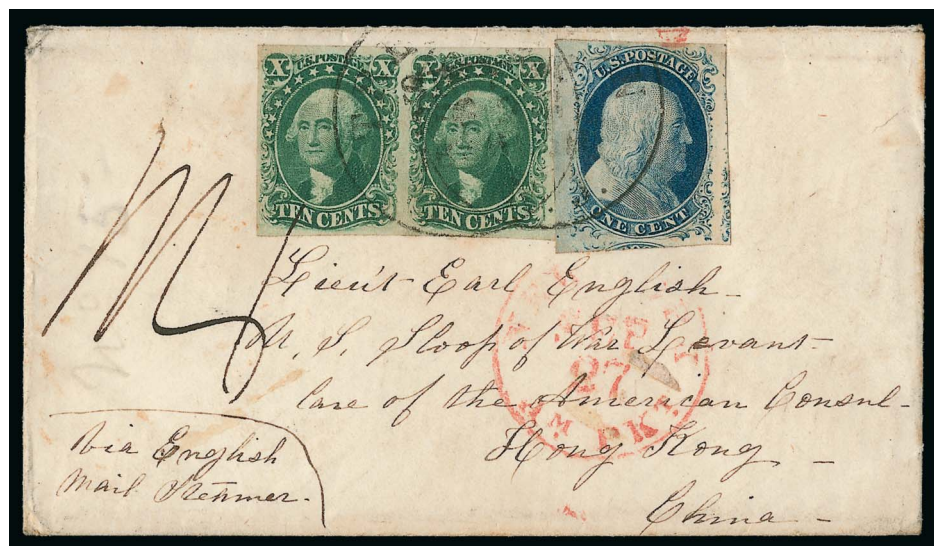 X U.S. POSTAGE X X U.S. POSTAGE X
U.S. POSTAGE
TEN CENTS TEN CENTS
ONE CENT
Lieu't Earl English
U. S. Sloop of War Levant
Care of the American Consul
Hong Kong
China
27
AM. PKT.
Via English
Mail Steamer.